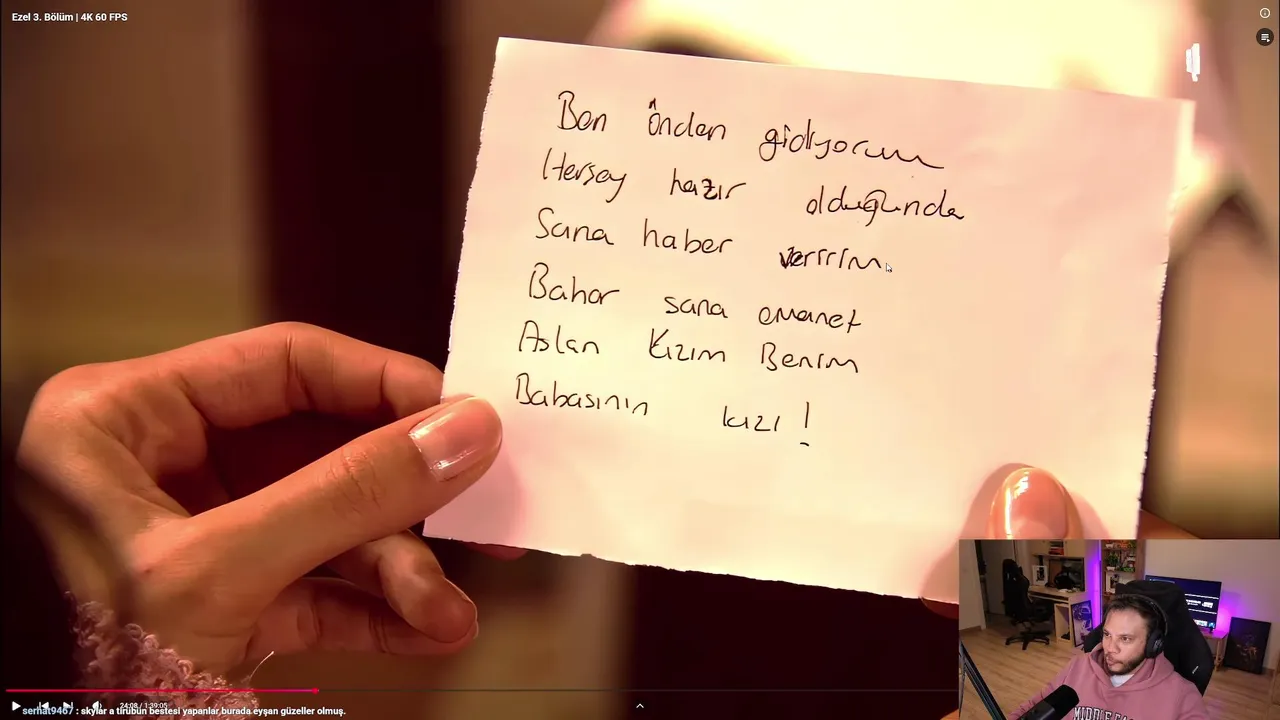 Ezel 3. Bölüm | 4K 60 FPS
Ben önden gidiyorum
Herşey hazır olduğunda
Sana haber veririm
Bahar sana emanet
Aslan Kızım Benim
Babasının kızı !
24:08 / 1:39:05
serhat9467 : skylar a tirübün bestesi yapanlar burada eyşan güzeller olmuş.